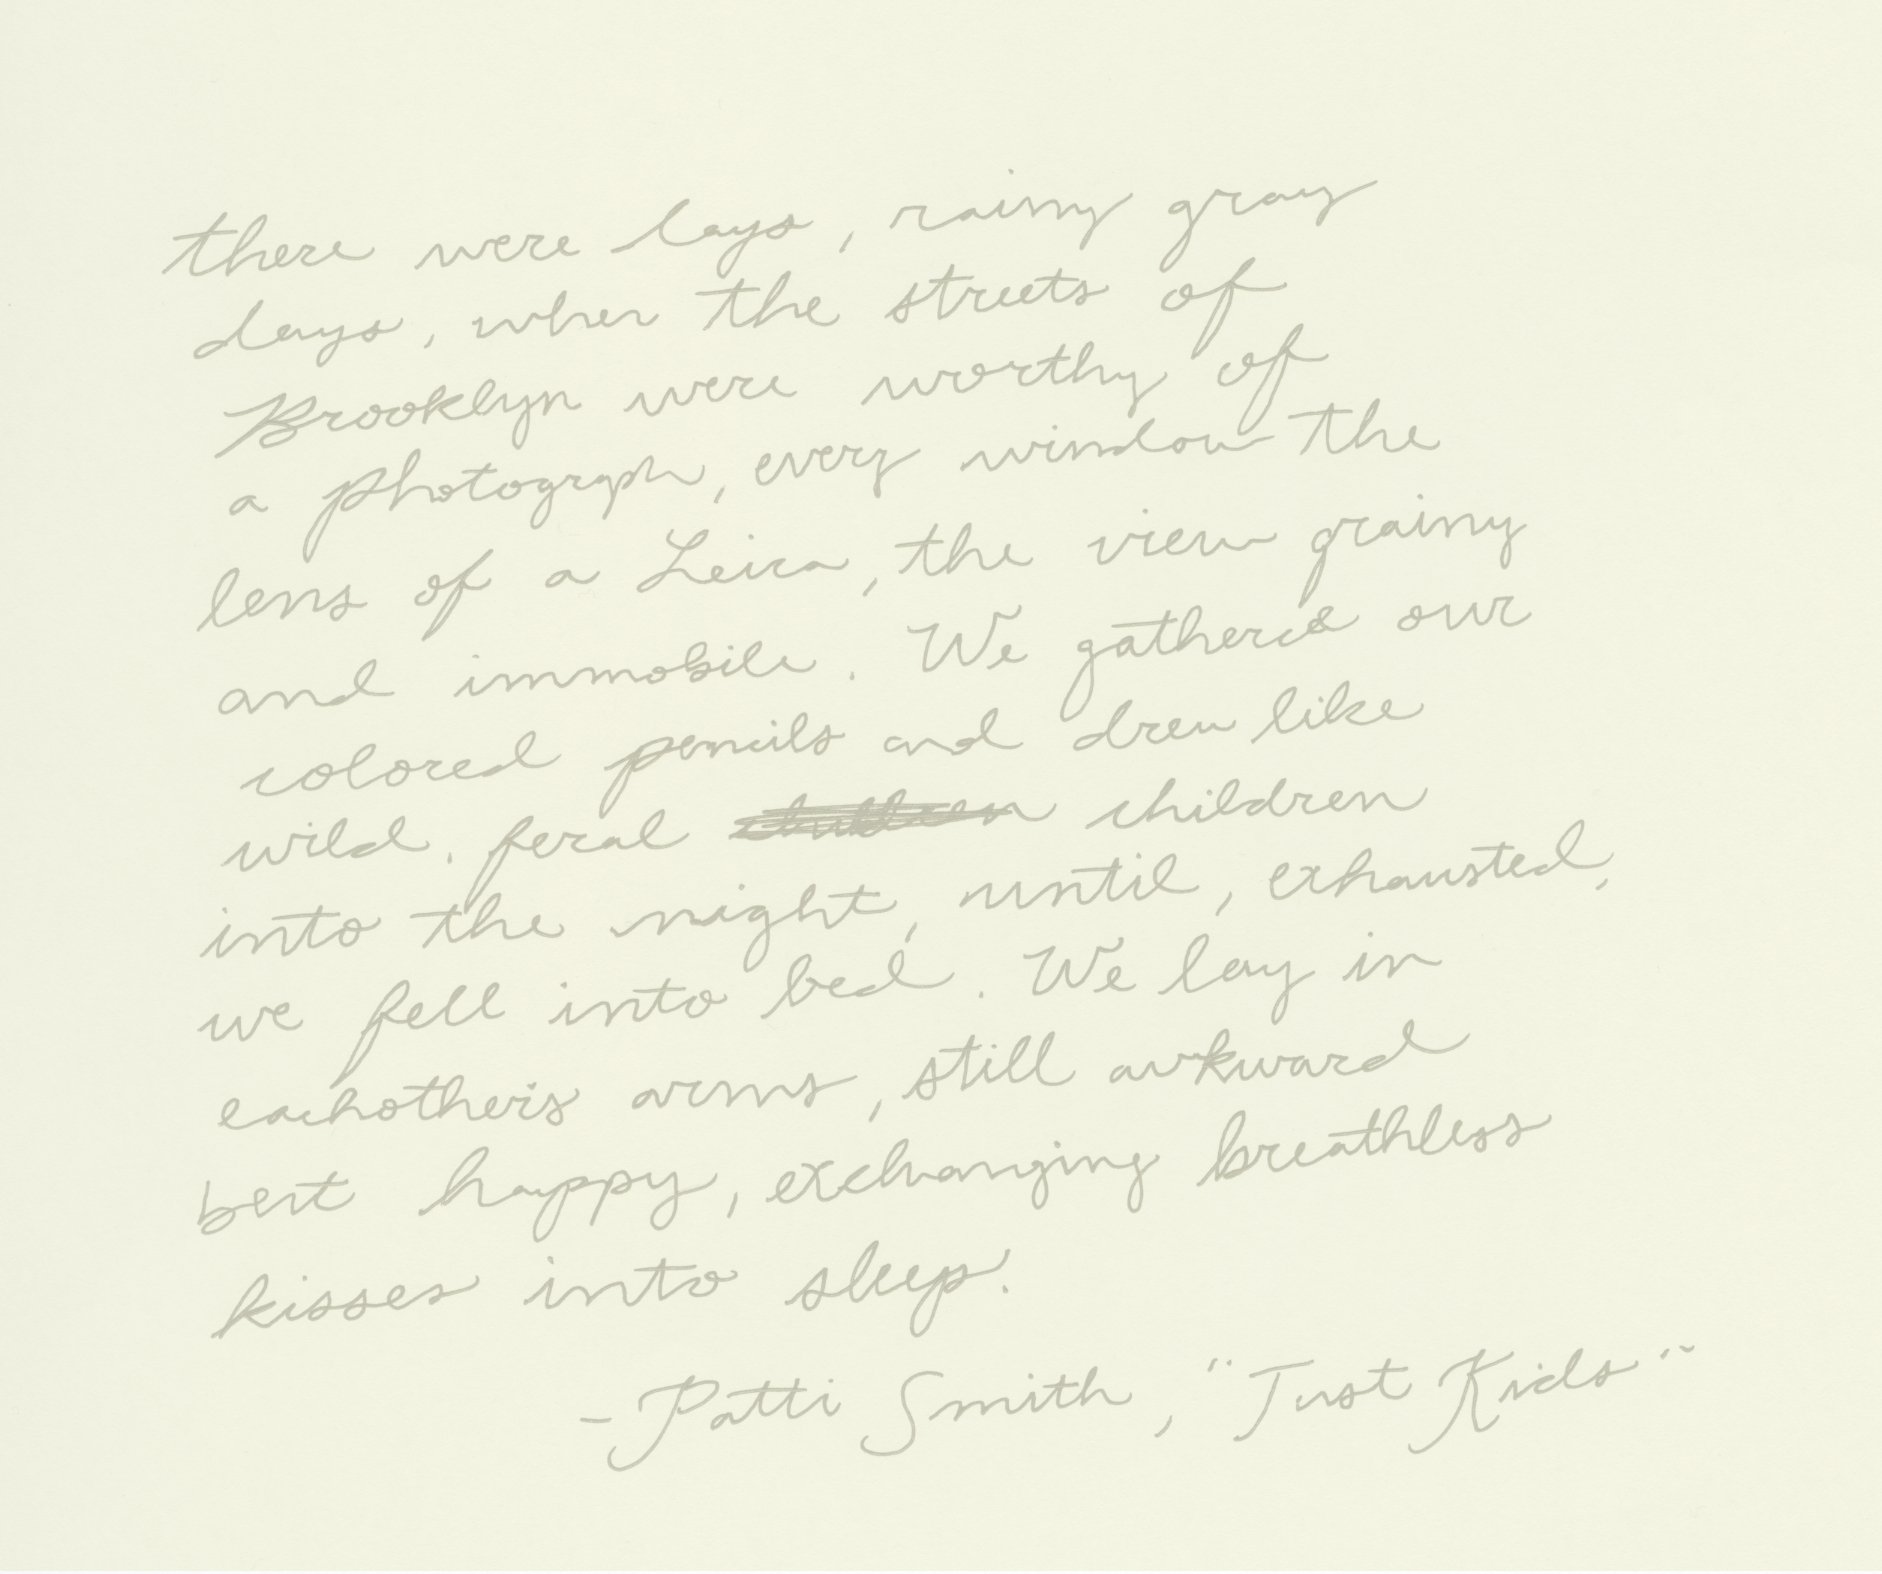 there were days, rainy gray
days, when the streets of
Brooklyn were worthy of
a photogrph, every window the
lens of a Leica, the view grainy
and immobile. We gathered our
colored pencils and drew like
wild, feral children children
into the night, until, exhausted,
we fell into bed. We lay in
eachother's arms, still awkward
but happy, exchanging breathless
kisses into sleep.
- Patti Smith, "Just Kids"